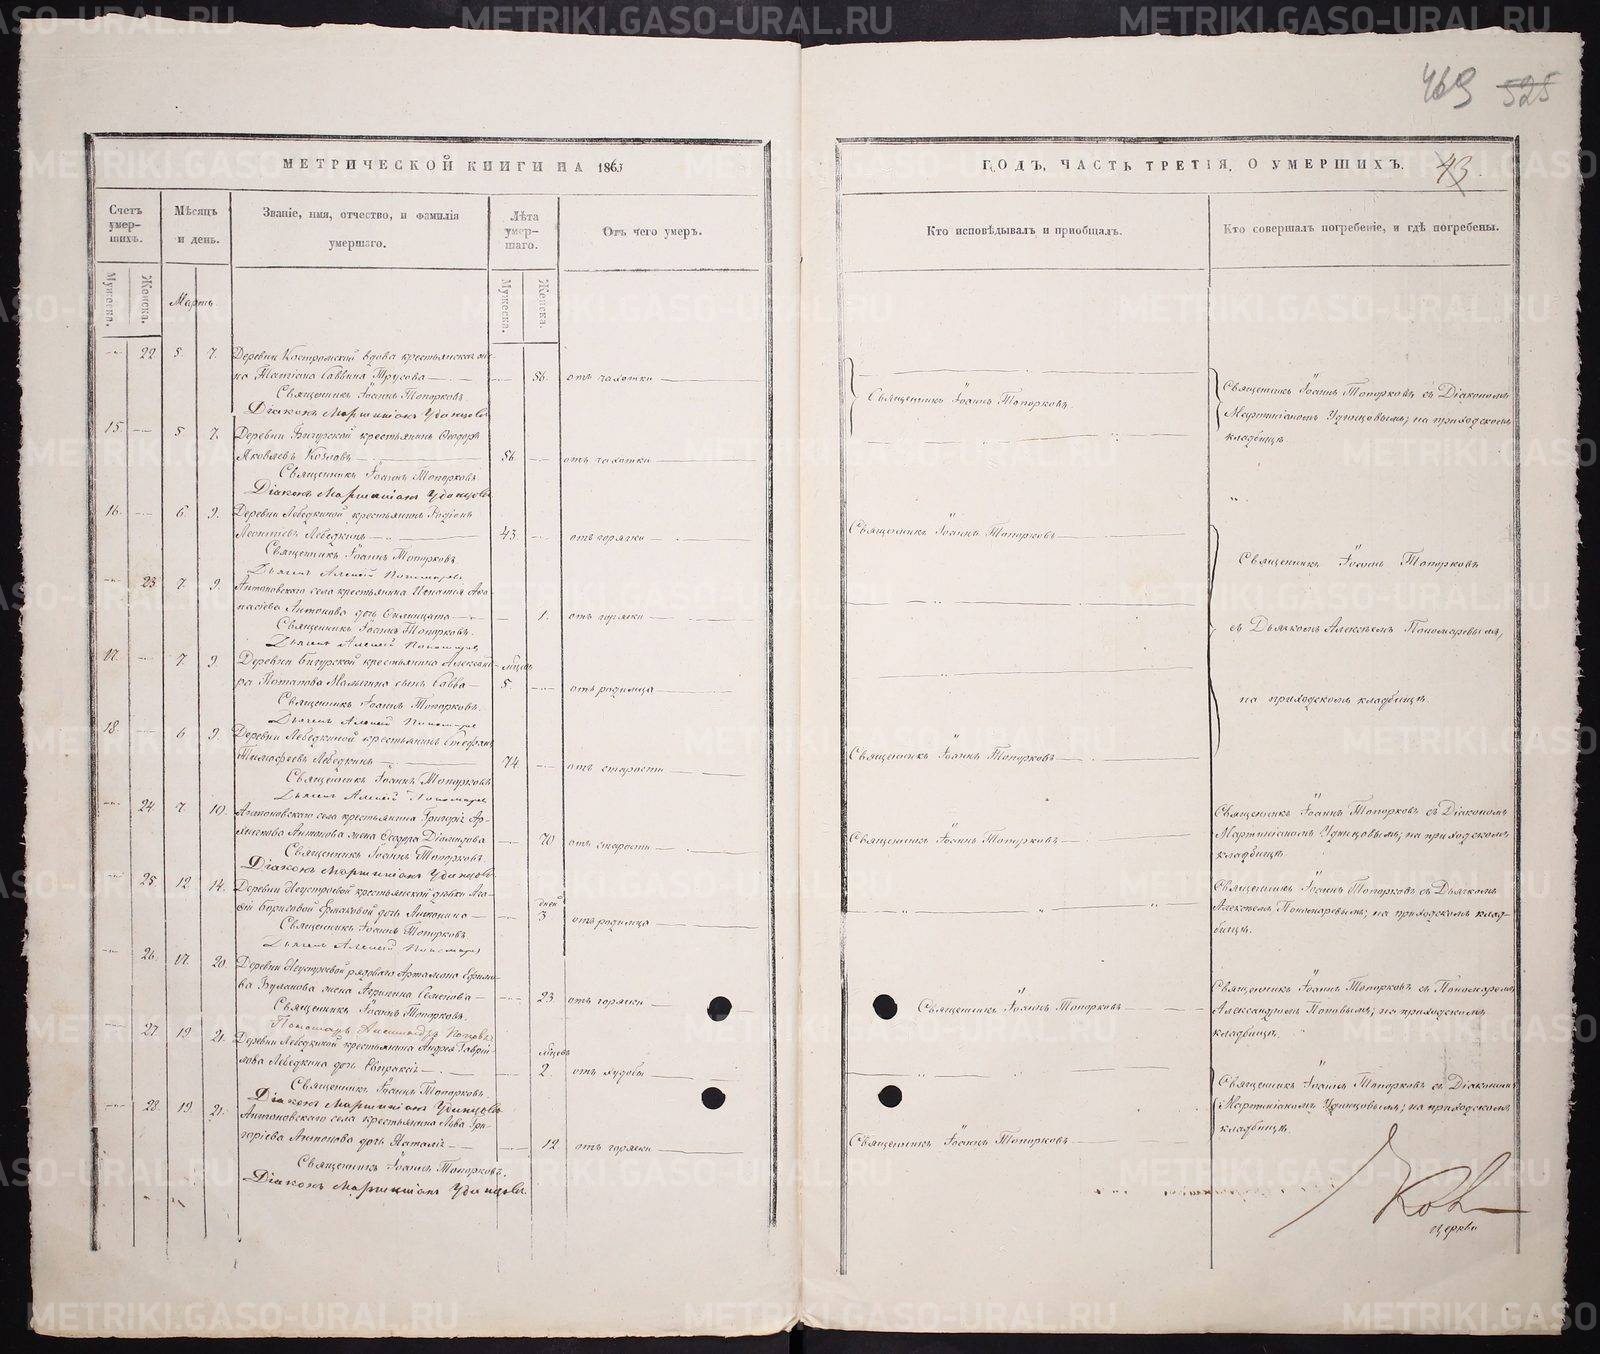 469 525
МЕТРИЧЕСКОЙ КНИГИ НА 1863
ГОДЪ, ЧАСТЬ ТРЕТІЯ, О УМЕРШИХЪ. 43
Счетъ умер-шихъ.
Мѣсяцъ и день.
Званіе, имя, отчество, и фамилія умершаго.
Лѣта умер-шаго.
Отъ чего умеръ.
Кто исповѣдывалъ и пріобщалъ.
Кто совершалъ погребеніе, и гдѣ погребены.
Мужеска. Женска.
Мужеска. Женска.
Мартъ
22 5. 7. Деревни Костромской вдова крестьянская же-
на Татіана Саввина Трусова 56. отъ чахотки
Священникъ Іоаннъ Топорковъ
Діаконъ Мартиніанъ Удинцовъ
15. 5. 7. Деревни Бичурской крестьянинъ Ѳеодоръ
Яковлевъ Козловъ 56. отъ чахотки
Священникъ Іоаннъ Топорковъ
Діаконъ Мартиніанъ Удинцовъ
16. 6. 9. Деревни Лебедкиной крестьянинъ Родіонъ
Леонтіевъ Лебедкинъ 43 отъ горячки
Священникъ Іоаннъ Топорковъ
Дьячекъ Алексѣй Пономаревъ
23 7. 9. Антоновскаго села крестьянина Игнатія Аѳа-
насіева Антонова дочь 1. отъ горячки
Священникъ Іоаннъ Топорковъ.
Дьячекъ Алексѣй Пономаревъ
17. 7. 9. Деревни Бичурской крестьянина Александ-
ра Потапова Малыгина сынъ Савва мѣсяцъ 5. отъ родимца
Священникъ Іоаннъ Топорковъ.
Дьячекъ Алексѣй Пономаревъ
18. 6 9. Деревни Лебедкиной крестьянинъ Стефанъ
Тимоѳеевъ Лебедкинъ 74 отъ старости
Священникъ Іоаннъ Топорковъ
Дьячекъ Алексѣй Пономаревъ
24 7. 10. Антоновскаго села крестьянина Григорія Ар-
Антонова жена Ѳеодора 70 отъ старости
Священникъ Іоаннъ Топорковъ.
Діаконъ Мартиніанъ Удинцовъ
25. 12 14. Деревни Неустроевой крестьянской дѣвки Ага-
фіи Борисовой Ермаковой дочь Антонина дней 3 отъ родимца
Священникъ Іоаннъ Топорковъ
Дьячекъ Алексѣй Пономаревъ
26. 17. 20. Деревни Неустроевой рядоваго Артамона Ефимо-
ва Буланова жена Агрипина Семенова 23 отъ горячки
Священникъ Іоаннъ Топорковъ.
Пономарь Александръ Поповъ
27 19 21. Деревни Лебедкиной крестьянина Андрея Гаврі-
лова Лебедкина дочь Евпраксія мѣсяцъ 2. отъ худобы
Священникъ Іоаннъ Топорковъ.
Діаконъ Мартиніанъ Удинцовъ
28. 19. 21. Антоновскаго села крестьянина Льва Гри-
горіева Антонова дочь Наталія 12. отъ горячки
Священникъ Іоаннъ Топорковъ.
Діаконъ Мартиніанъ Удинцовъ.
Священникъ Іоаннъ Топорковъ.
Священникъ Іоаннъ Топорковъ
Священникъ Іоаннъ Топорковъ
Священникъ Іоаннъ Топорковъ
Священникъ Іоаннъ Топорковъ
Священникъ Іоаннъ Топорковъ
Священникъ Іоаннъ Топорковъ съ Діакономъ
Мартиніаномъ Удинцовымъ; на приходскомъ
кладбищѣ.
Священникъ Іоаннъ Топорковъ
съ Дьячкомъ Алексѣемъ Пономаревымъ,
на приходскомъ кладбищѣ.
Священникъ Іоаннъ Топорковъ съ Діакономъ
Мартиніаномъ Удинцовымъ; на приходскомъ
кладбищѣ.
Священникъ Іоаннъ Топорковъ съ Дьячкомъ
Алексѣемъ Пономаревымъ; на приходскомъ клад-
бищѣ.
Священникъ Іоаннъ Топорковъ съ Пономаремъ
Александромъ Поповымъ; на приходскомъ
кладбищѣ.
Священникъ Іоаннъ Топорковъ съ Діакономъ
Мартиніаномъ Удинцовымъ; на приходскомъ
кладбищѣ.
церкви
METRIKI.GASO-URAL.RU